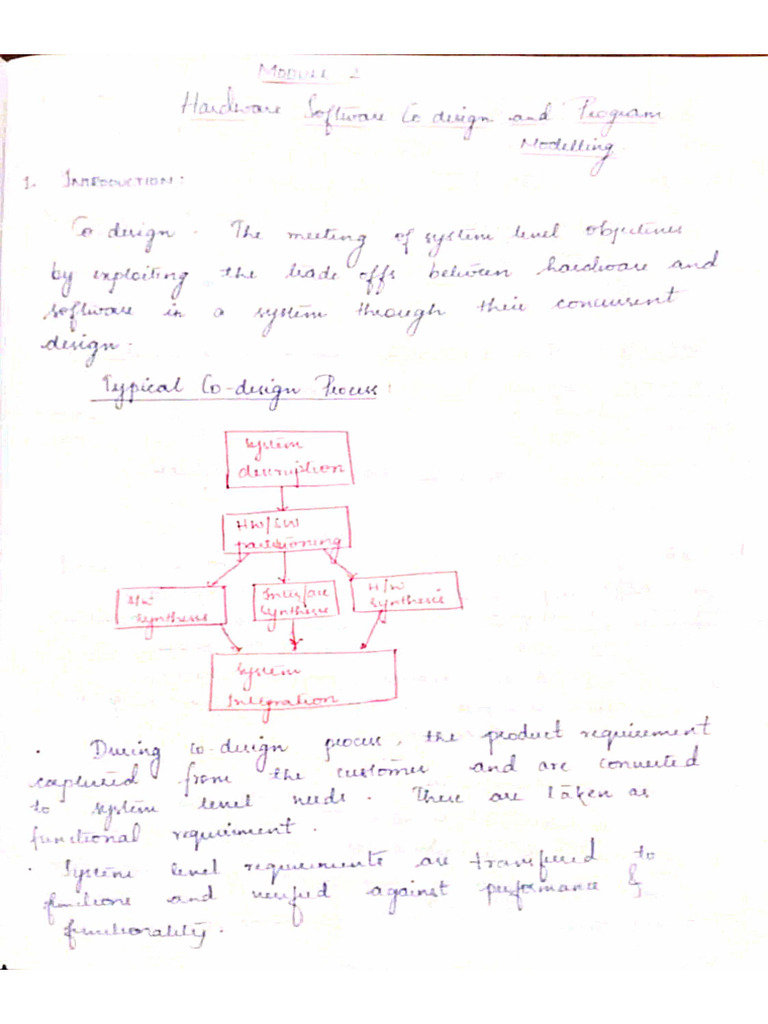 MODULE 2
Hardware Software Co design and Program
Modelling
1. INTRODUCTION:
Co-design - The meeting of system level objectives
by exploiting the trade offs between hardware and
software in a system through their concurrent
design.
Typical Co-design Process:
System
description
HW/SW
partitioning
S/W
synthesis
Interface
synthesis
H/W
synthesis
System
Integration
. During co-design process, the product requirement
captured from the customer and are converted
to system level needs. These are taken as
functional requirment.
. System level requirements are transfered to
functions and verified against performance &
functionality.